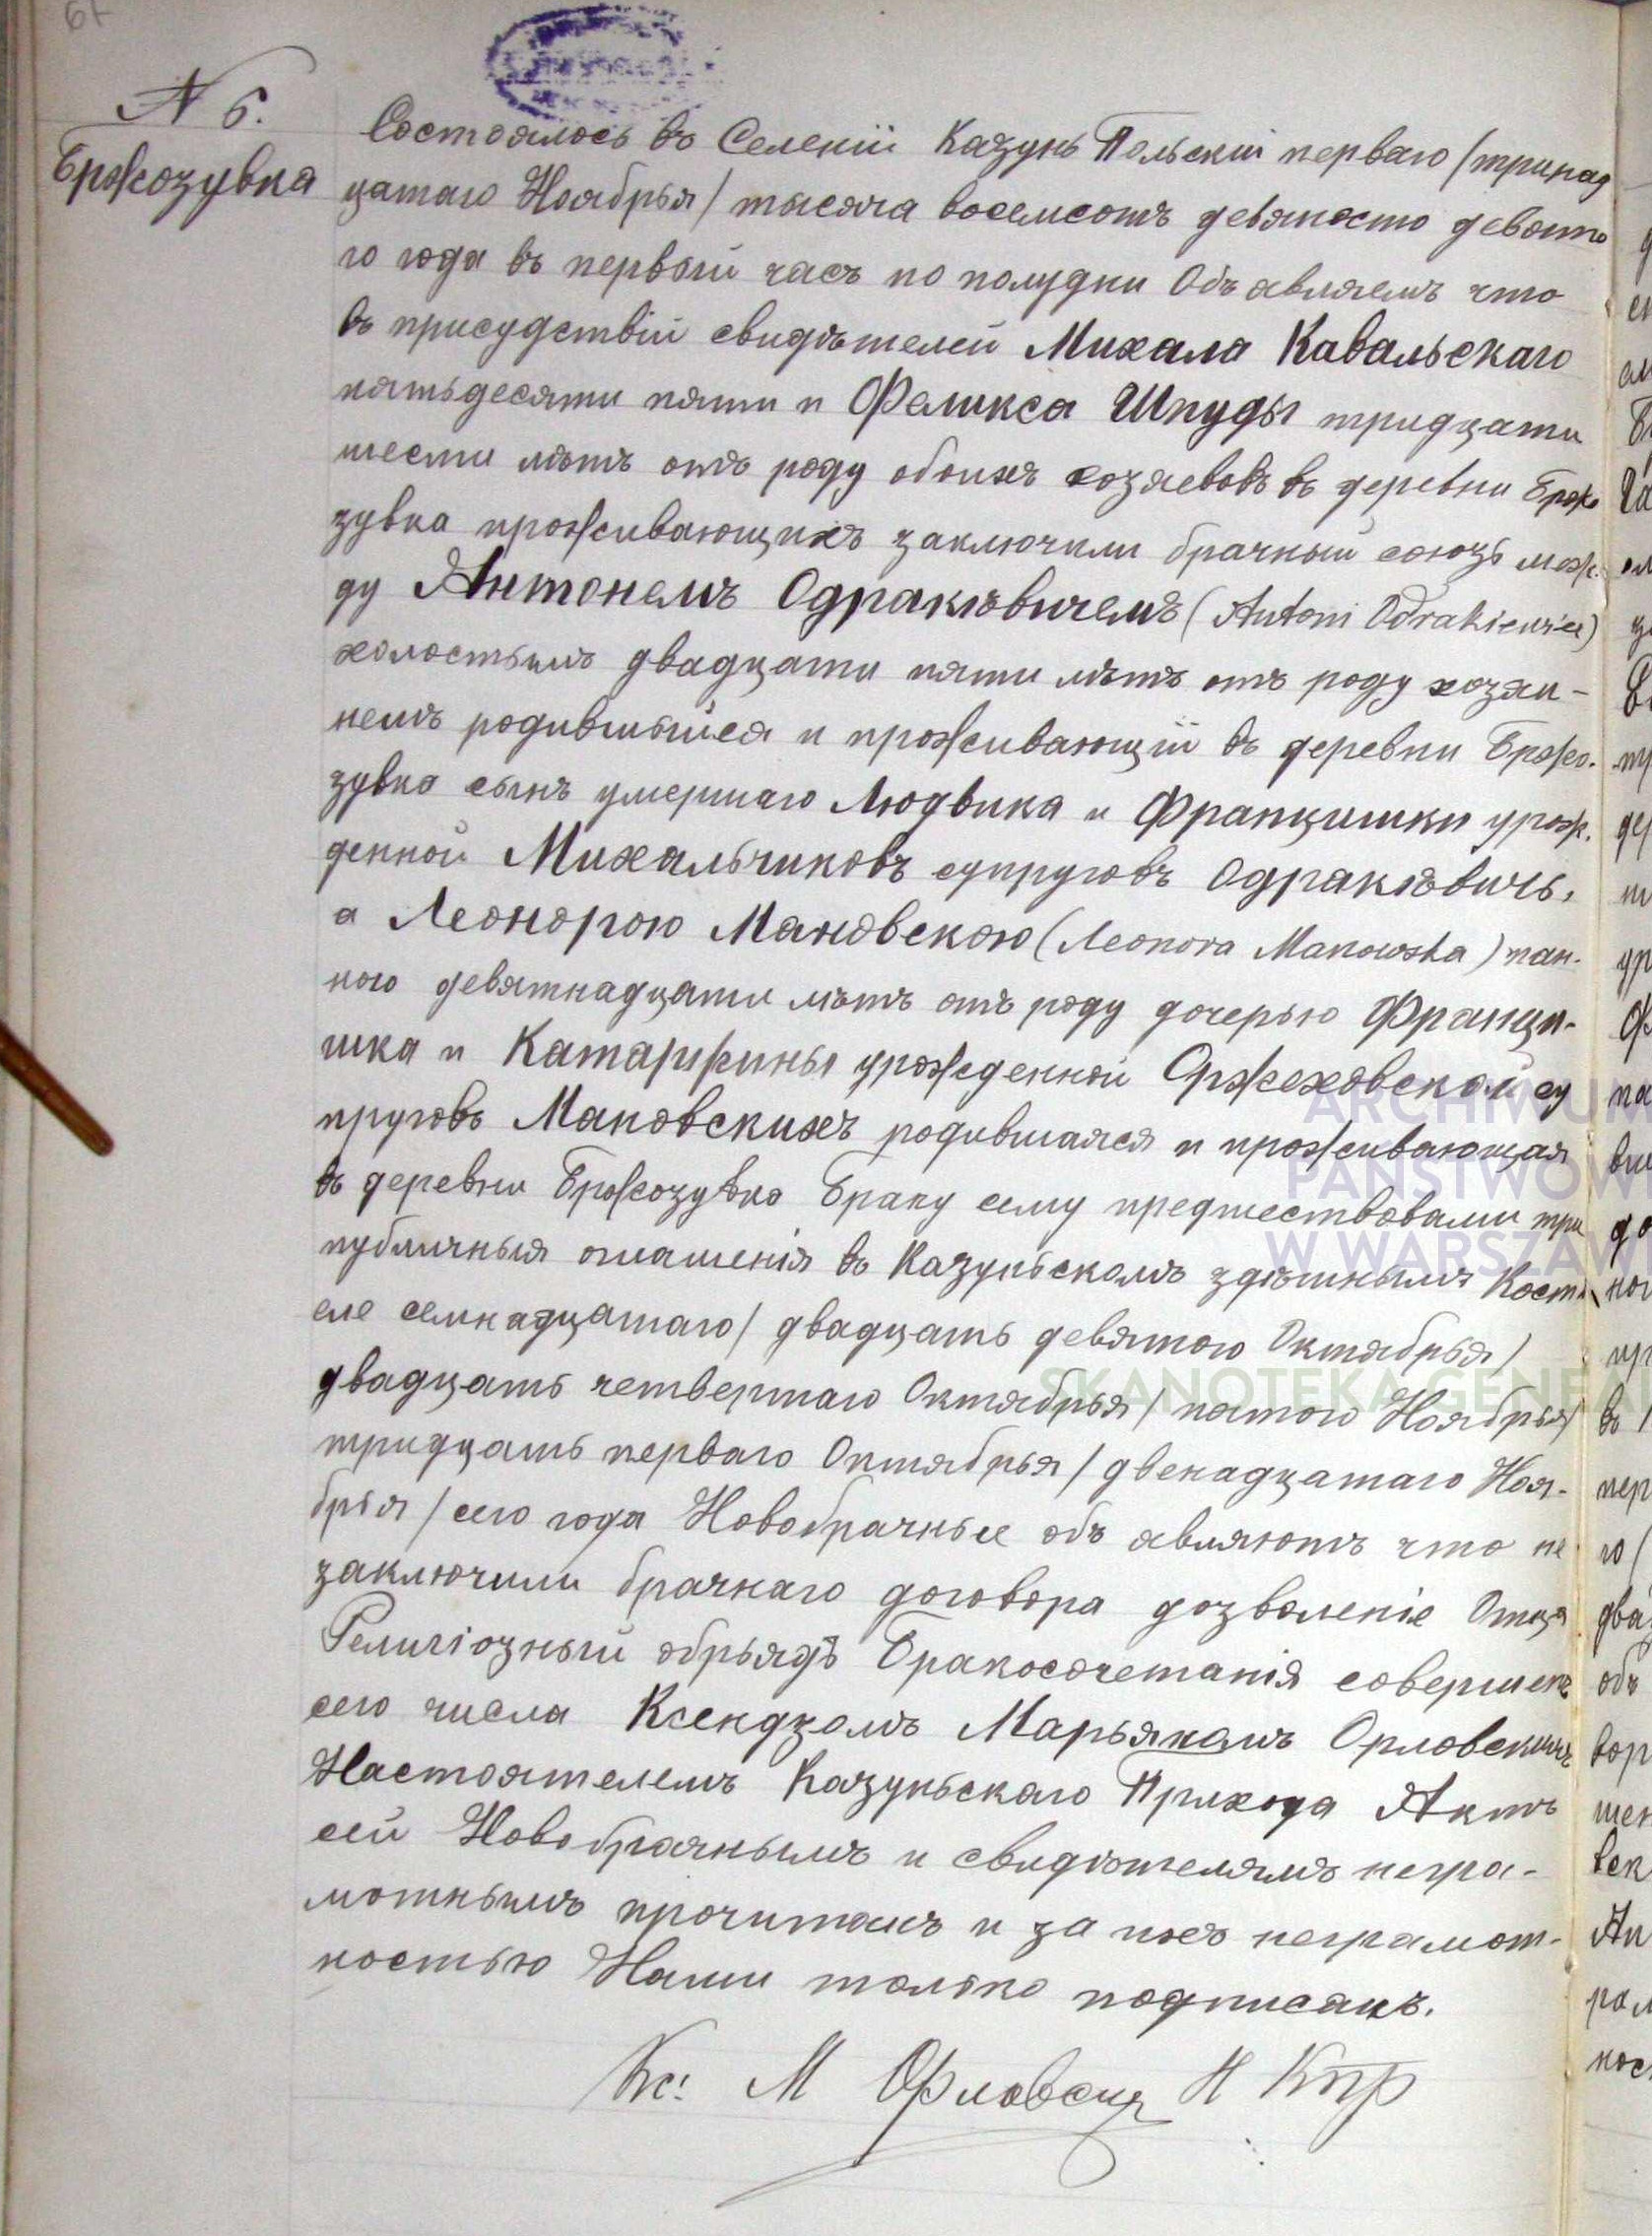 67
N 6.
Бржозувка
Состоялось въ Селеніи Казунь Польскіи перваго /тринад
цатаго Ноябрья/ тысяча восемсотъ девяносто девято
го года въ первый часъ по полудни Объ авляемъ что
въ присудствіи свидѣтелей Михала Кавальскаго
пятьдесяти пяти и Феликса Шпуды тридцати
шести лѣтъ отъ роду обоихъ хозяевовъ въ деревни Бржо
зувка проживающихъ заключили брачный союзъ меж.
ду Антонемъ Одракѣвичемъ (Antoni Odrakiewicz)
холостымъ двадцати пяти лѣтъ отъ роду хозяи-
немъ родившыйся и проживающій въ деревни Бржо-
зувка сынъ умершаго Людвика и Францишки урож.
денной Михальчиковъ супруговъ Одракѣвичъ,
а Леонорою Мановскою (Leonora Manowska) пан-
ною девятнадцати лѣтъ отъ роду дочерью Франци-
шка и Катаржины урожденной Оржеховской су
пруговъ Мановскихъ родившаяся и проживающая
въ деревни Бржозувка Браку сему предшествовали три
публичныя оглашенія въ Казуньскомъ здѣшнымъ Кост
еле семнадцатаго/ двадцать девятого Октябрья/
двадцать четвертаго Октябрья/ пятого Ноябрья/
тридцать перваго Октябрья/ двенадцатаго Ноя-
брья/ сего года Новобрачные объ авляютъ что не
заключили брачнаго договора дозволеніе Отца
Религіозный обрьядъ Бракосочетанія совершенъ
сего числа Ксендзомъ Марьяномъ Орловскимъ
Настоятелемъ Казуньскаго Прихода Актъ
сей Новобрачнымъ и свидѣтелямъ негра-
мотнымъ прочитанъ и за ихъ неграмот-
ностью Нами только подписанъ.
Кс: М Орловскі Н Кпр
ARCHIWUM
PAŃSTWOWE
W WARSZAWIE
SKANOTEKA GENEAL